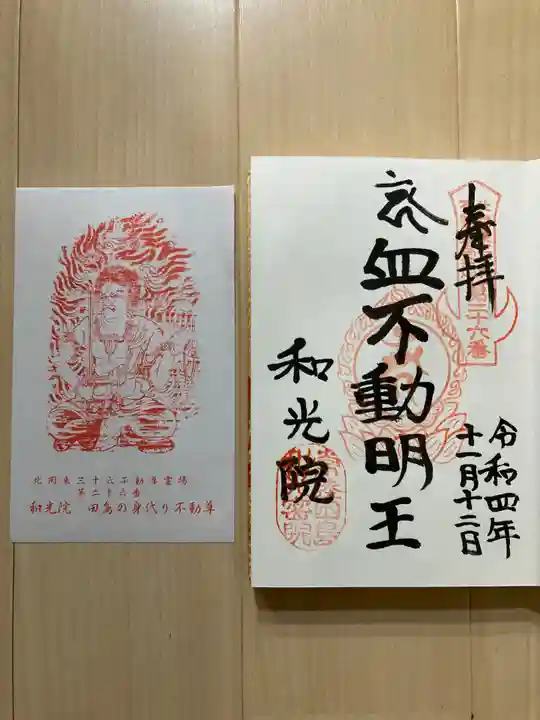 北関東三十六不動尊霊場
第二十六番
和光院　田島の身代り不動尊
奉拝
二十六番
血不動明王
和光院
令和四年
十一月十二日